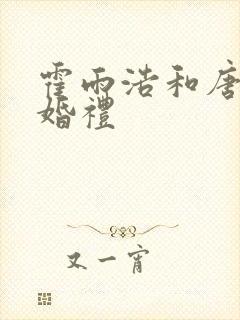 霍雨浩和唐
婚禮
又一宵